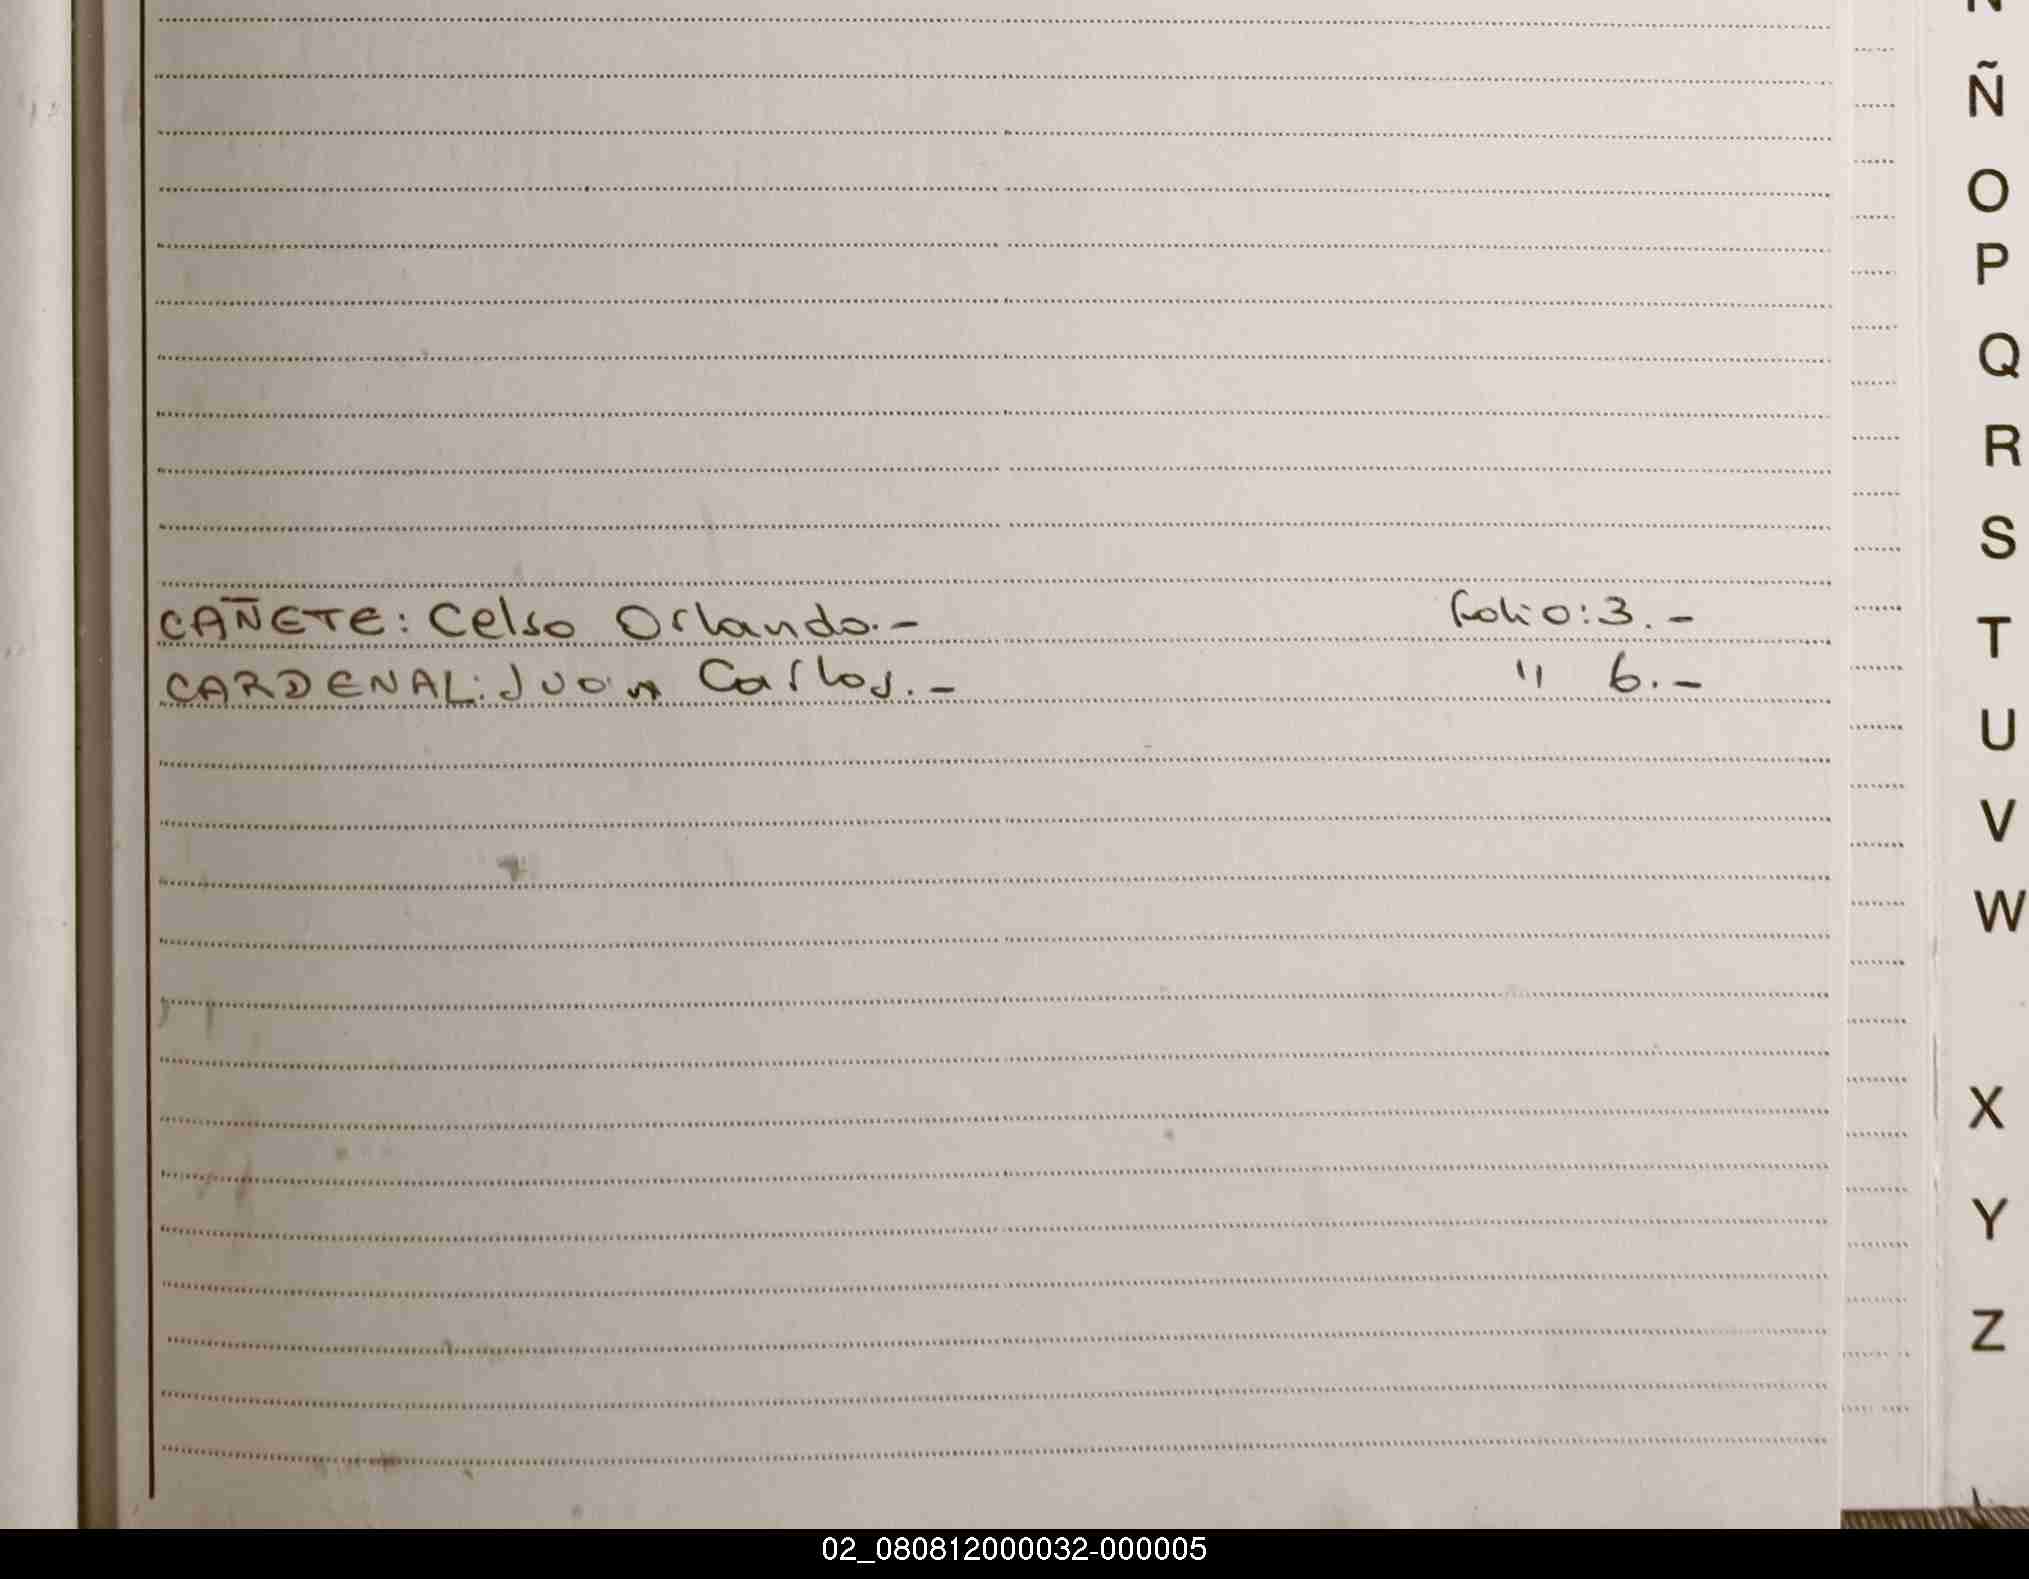 CAÑETE: Celso Orlando.- folio: 3.-
CARDENAL: Juan Carlos.- " 6.-
N
Ñ
O
P
Q
R
S
T
U
V
W
X
Y
Z
02_080812000032-000005